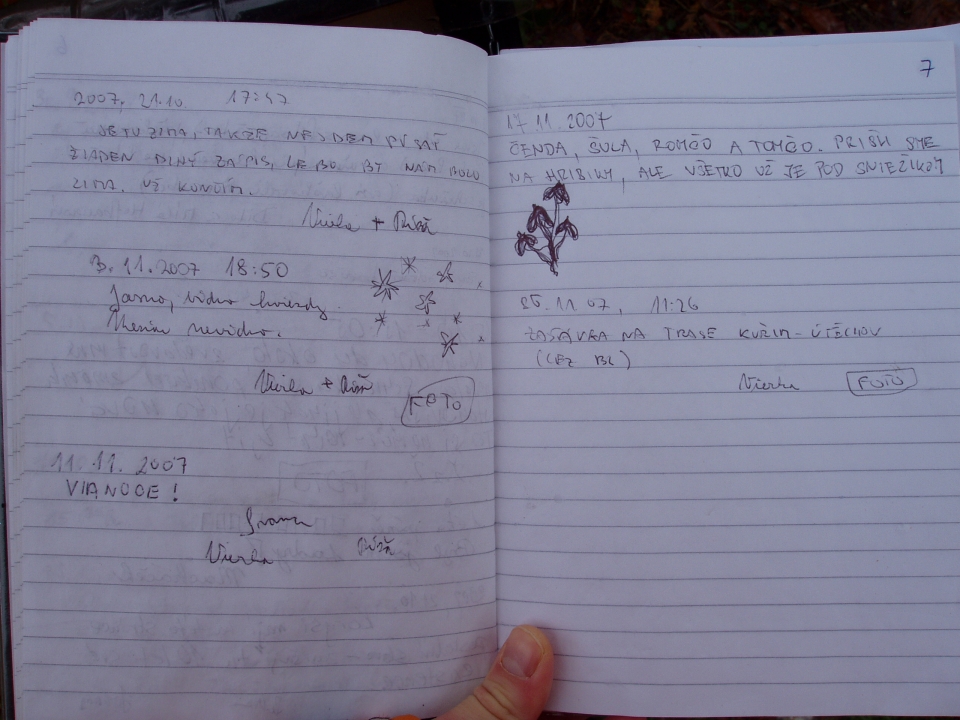 2007, 21.10 17:47
JE TU ZIMA, TAKŽE NEJDEM PÍSAŤ
ŽIADEN DLHÝ ZÁPIS, LEBO BY NÁM BOLO
ZIMA. UŽ KONČÍM.
Vierka +
3.11.2007 18:50
Jasno, vidno hviezdy.
nevidno.
Vierka +
FOTO
11.11.2007
VIANOCE!
Vierka
7
17.11.2007
ČENDA, ŠULA, ROMČO A TOMČO. PRIŠLI SME
NA HRÍBIKY, ALE VŠETKO UŽ JE POD SNIEŽIKOM
25.11.07, 11:26
ZASTÁVKA NA TRASE KUŘIM - ÚTĚCHOV
(CEZ BK)
Vierka FOTO